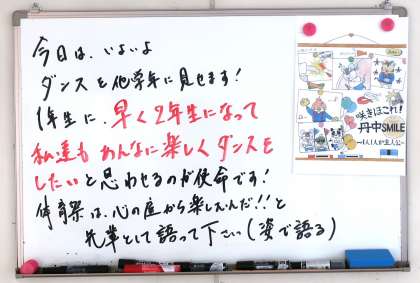 今日は、いよいよ
ダンスを他学年に見せます!
1年生に、早く2年生になって
私達もあんなに楽しくダンスを
したいと思わせるのが使命です!
体育祭は、心の底から楽しむんだ!!と
先輩として語って下さい(姿で語る)
咲きほこれ!
丹中SMILE
~1人1人が主人公~